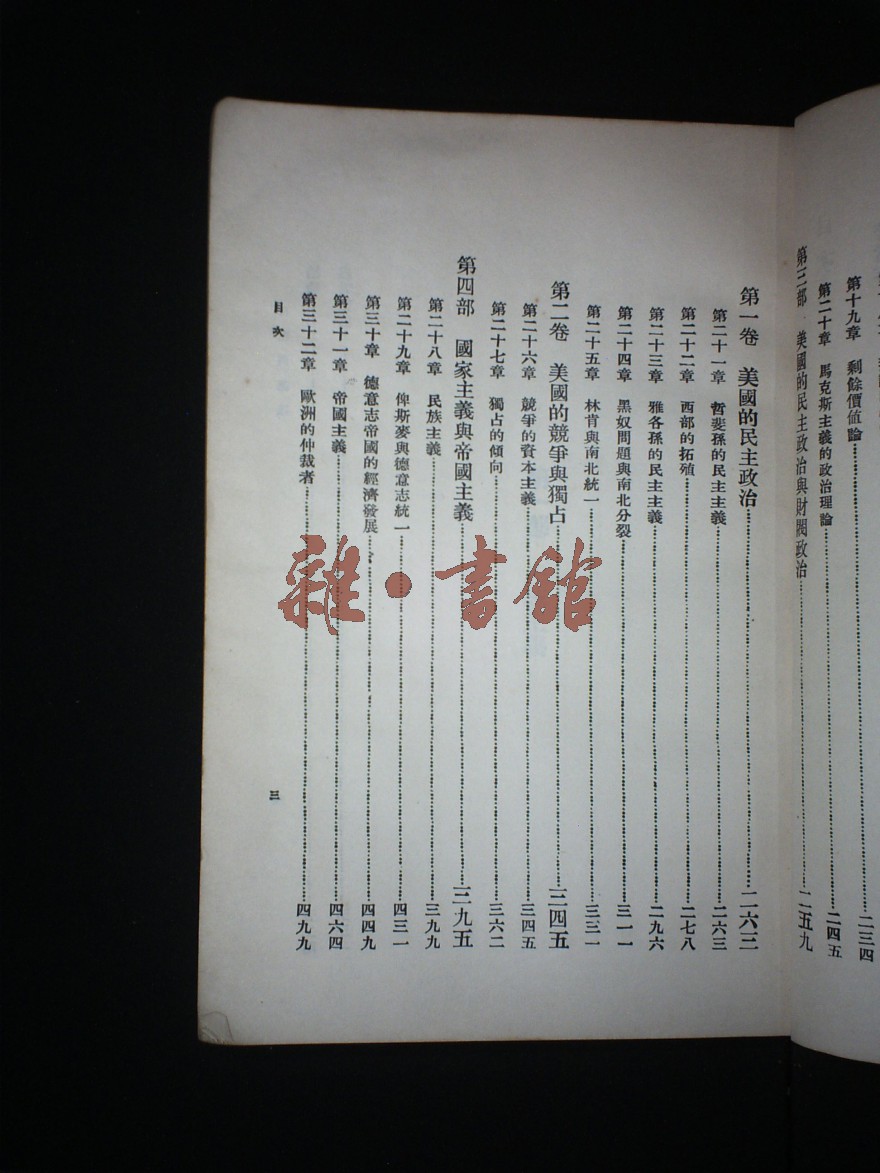 第十九章 剩餘價値論 二三四
第二十章 馬克斯主義的政治理論 二四五
第三部 美國的民主政治與財閥政治 二五九
第一卷 美國的民主政治 二六三
第二十一章 哲斐孫的民主主義 二六三
第二十二章 西部的拓殖 二七八
第二十三章 雅各孫的民主主義 二九六
第二十四章 黑奴問題與南北分裂 三一一
第二十五章 林肯與南北統一 三三一
第二卷 美國的競爭與獨占 三四五
第二十六章 競爭的資本主義 三四五
第二十七章 獨占的傾向 三六二
第四部 國家主義與帝國主義 三九五
第二十八章 民族主義 三九九
第二十九章 俾斯麥與德意志統一 四三一
第三十章 德意志帝國的經濟發展 四四九
第三十一章 帝國主義 四六四
第三十二章 歐洲的仲裁者 四九九
目次
三
雜·書館